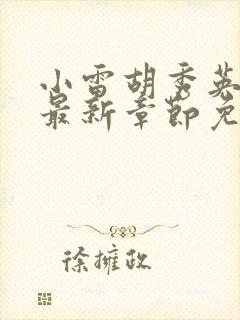 小雷胡秀英
最新章节免
徐擁政